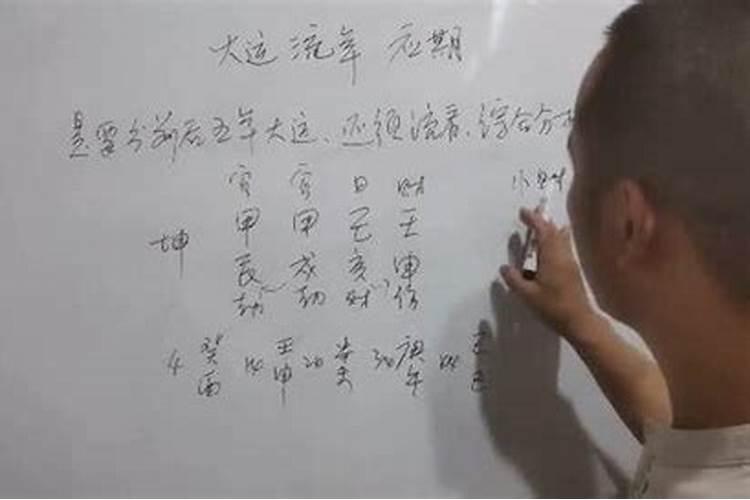 大运 流年 应期
是需分前后五年大运、还须流看、综合分
官 官 日 财
甲 甲 己 壬
坤
辰 戌 亥 申
劫 劫 财 伤
4 癸酉 14 壬申 24 辛未 34 庚午 44 己巳